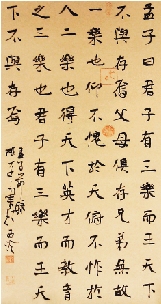 孟子曰君子有三樂而王天下
不與存焉父母俱存兄弟無故
一樂也仰不愧於天俯不怍於
人二樂也得天下英才而教育
之三樂也君子有三樂而王天
下不與存焉